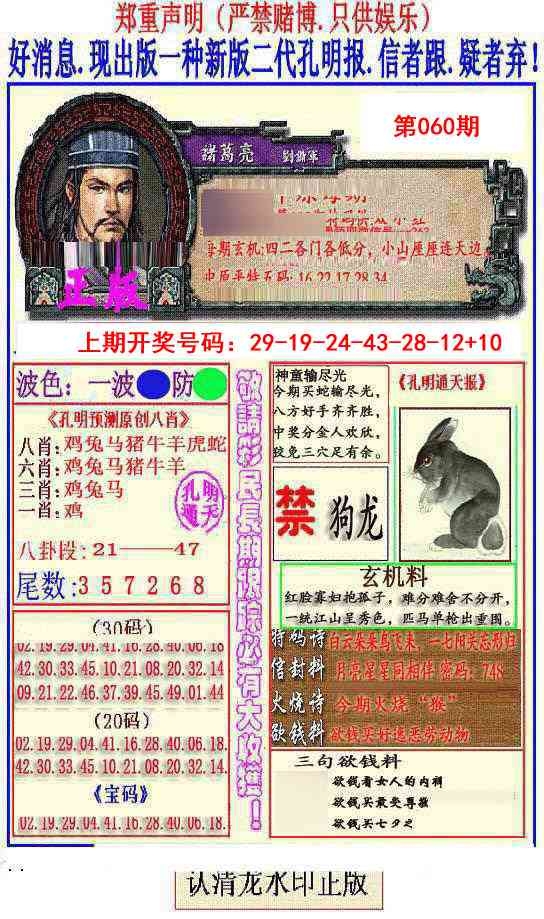 郑重声明（严禁赌博.只供娱乐）
好消息.现出版一种新版二代孔明报.信者跟.疑者弃！
第060期
諸葛亮 劉謝軍
每期玄机:四二各门各低分，小山屋屋连天边。
中原平特五码: 16.22.17.28.34
正版
上期开奖号码：29-19-24-43-28-12+10
波色：一波 防
《孔明预测原创八肖》
八肖: 鸡兔马猪牛羊虎蛇
六肖: 鸡兔马猪牛羊
三肖: 鸡兔马
一肖: 鸡
孔明通天
八卦段: 21——47
尾数: 3 5 7 2 6 8
(30码)
02.19.29.04.41.16.28.40.06.18
42.30.33.45.10.21.08.20.32.14
09.21.22.46.37.39.45.49.01.44
(20码)
02.19.29.04.41.16.28.40.06.18
42.30.33.45.10.21.08.20.32.14.
《宝码》
02.19.29.04.41.16.28.40.06.18.
敬請彩民長期跟踪必有大收獲！
神童输尽光
今期买蛇输尽光，
八方好手齐齐胜，
中奖分金人欢欣，
狡兔三穴足有余。
《孔明通天报》
禁 狗龙
玄机料
红脸寡妇抱孤子，难分难舍不分开，
一统江山呈秀色，匹马单枪出重围。
特码诗 白云朵朵鸟飞来，一七阳关忘形归
信封料 月亮星星同相伴 密码：748
火烧诗 今期火烧“猴”
欲钱料 欲钱买好逸恶劳动物
三句欲钱料
欲钱看女人的内裤
欲钱买最受尊敬
欲钱买七夕之
认清龙水印正版